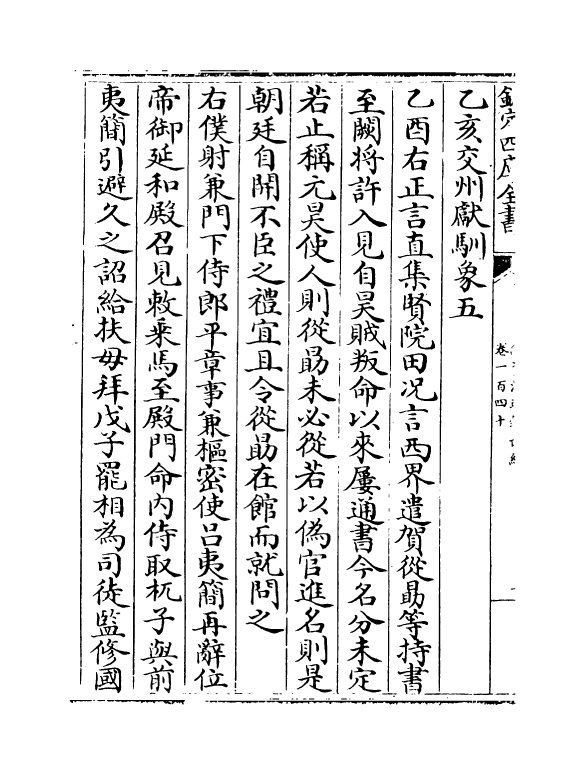 欽定四庫全書
卷一百四十
乙亥交州獻馴象五
乙酉右正言直集賢院田况言西界遣賀從勗等持書
至闕將許入見自昊賊叛命以來屢通書今名分未定
若止稱元昊使人則從勗未必從若以偽官進名則是
朝廷自開不臣之禮宜且令從勗在館而就問之
右僕射兼門下侍郎平章事兼樞密使吕夷簡再辭位
帝御延和殿召見敕乘馬至殿門命内侍取杌子與前
夷簡引避久之詔給扶毋拜戊子罷相為司徒監修國